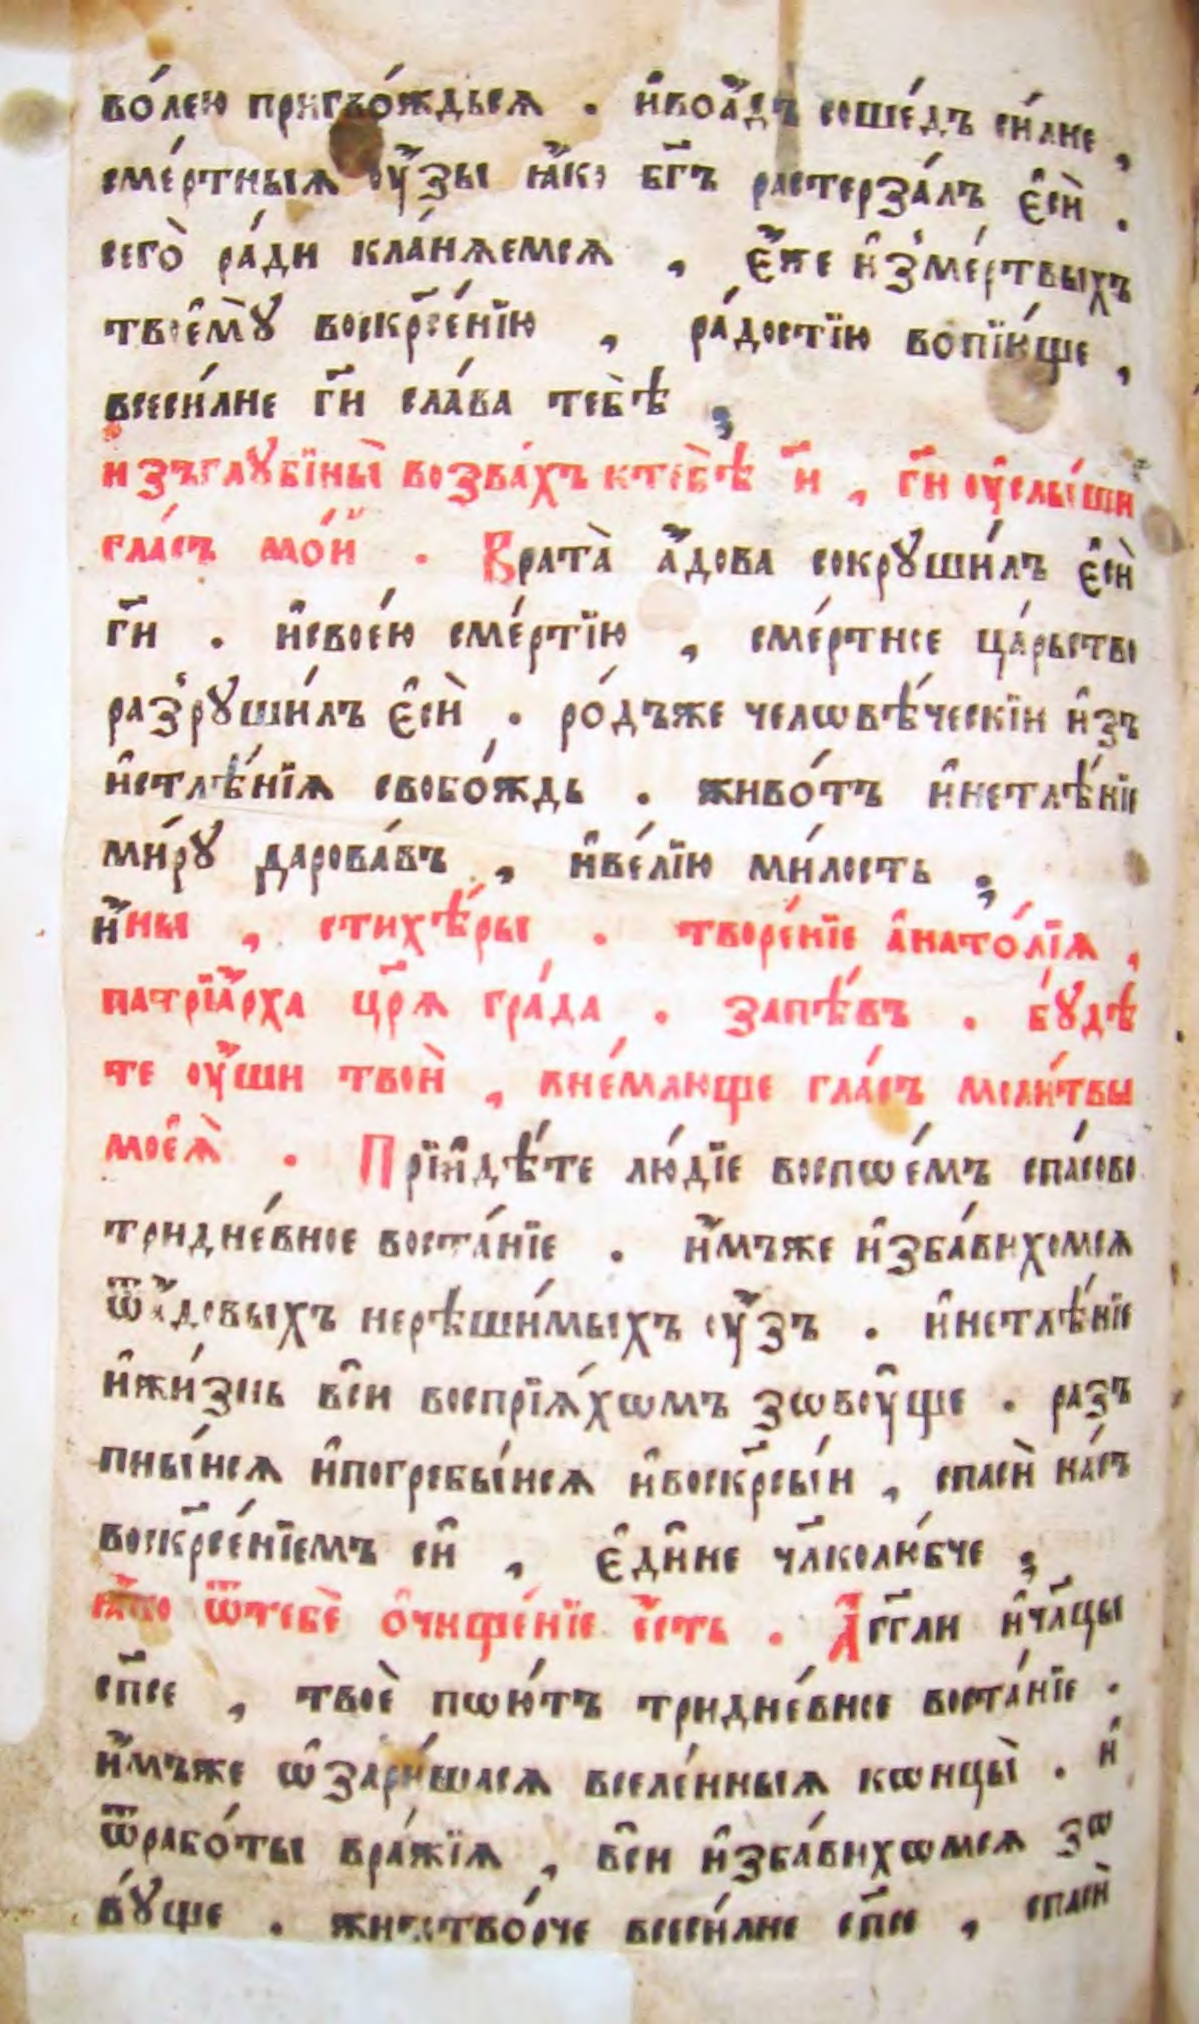 во́лею пригво́ждься . и҆воа҆́дъ соше́дъ си́лне ,
сме́ртныя оу҆́зы ꙗ҆́ко бг҃ъ растерза́лъ є҆сѝ .
сего̀ ра́ди кла́няемся , є҆́же и҆зме́ртвыхъ
твоемꙋ̀ воскр҃се́нїю , ра́достїю вопїю́ще ,
всеси́лне гд҃и сла́ва тебѣ̀ ,
и҆зъглꙋбины̀ возва́хъ ктебѣ̀ гд҃и , гд҃и оу҆слы́ши
гла́съ мо́й . Врата̀ а҆́дова сокрꙋши́лъ є҆сѝ
гд҃и . и҆свое́ю сме́ртїю , сме́ртное ца́рьство
разрꙋши́лъ є҆сѝ . ро́дъже челѡвѣ́ческїи и҆зъ
и҆стлѣ́нїя свобо́ждь . живо́тъ и҆нетлѣ́нїе
ми́рꙋ дарова́въ , и҆ве́лїю ми́лость ,
и҆́ны , стихѣ́ры . творе́нїе а҆нато́лїя ,
патрїа́рха цр҃я гра́да . запѣ́въ . бꙋ́дѣ
те оу҆́ши твоѝ , вне́млюще гла́съ моли́твы
моея̀ . Прїи҆дѣ́те лю́дїе воспѡе́мъ спа́сово
тридне́вное воста́нїе . и҆́мъже и҆зба́вихомся
ѿа҆́довыхъ нерѣши́мыхъ оу҆́зъ . и҆нетлѣ́нїе
и҆жи́знь вси̂ воспрїя́хѡмъ зѡвоу҆ще . разъ
пны́йся и҆погребы́йся и҆воскр҃сы́й , спасѝ на́съ
воскр҃се́нїемъ си̂ , є҆ди̂не чл҃колю́бче ,
ꙗ҆́ко ѿтебѐ ѻ҆чище́нїе є҆́сть . А҆гг҃ли и҆чл҃цы
сп҃се , твоѐ пѡю́тъ тридне́вное воста́нїе .
и҆́мъже ѡ҆зари́шася вселе́нныя кѡнцы̀ . и҆
ѿрабо́ты вра́жїя , вси̂ и҆зба́вихѡмся зѡ
вꙋ́ще . животво́рче всеси́лне сп҃се , спасѝ